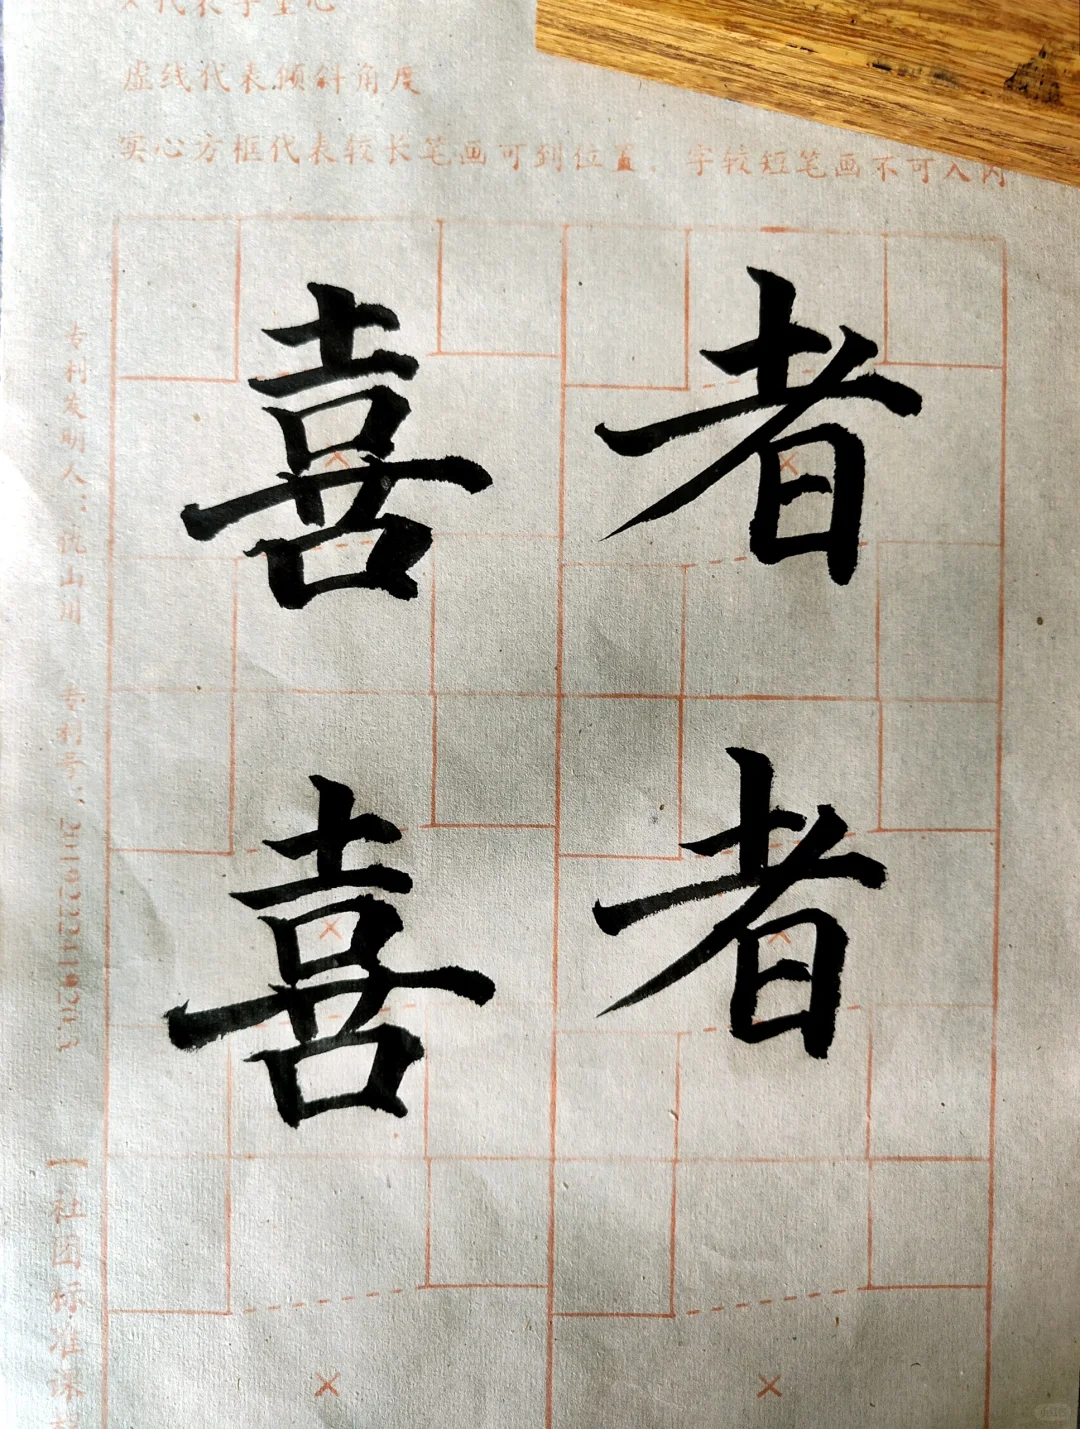 代表字重心
虚线代表倾斜角度
实心方框代表较长笔画可到位置，字较短笔画不可入内
喜者
喜者
专利发明人：仇山川
【社团标准课